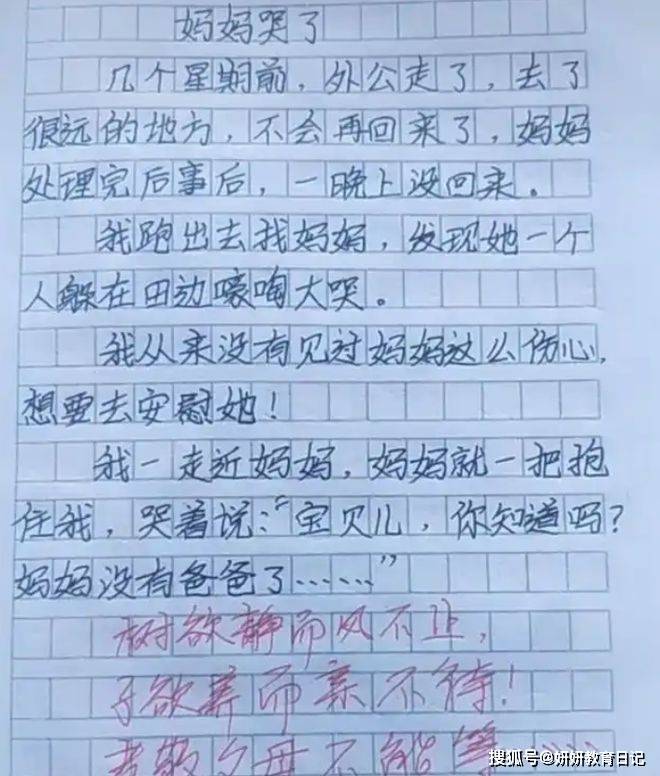 妈妈哭了
几个星期前，外公走了，去了
很远的地方，不会再回来了，妈妈
处理完后事后，一晚上没回来。
我跑出去找妈妈，发现她一个
人躲在田边嚎啕大哭。
我从来没有见过妈妈这么伤心，
想要去安慰她！
我一走近妈妈，妈妈就一把抱
住我，哭着说：“宝贝儿，你知道吗？
妈妈没有爸爸了……”
树欲静而风不止，
子欲养而亲不待！
孝敬父母不能等……
搜狐号@妍妍教育日记